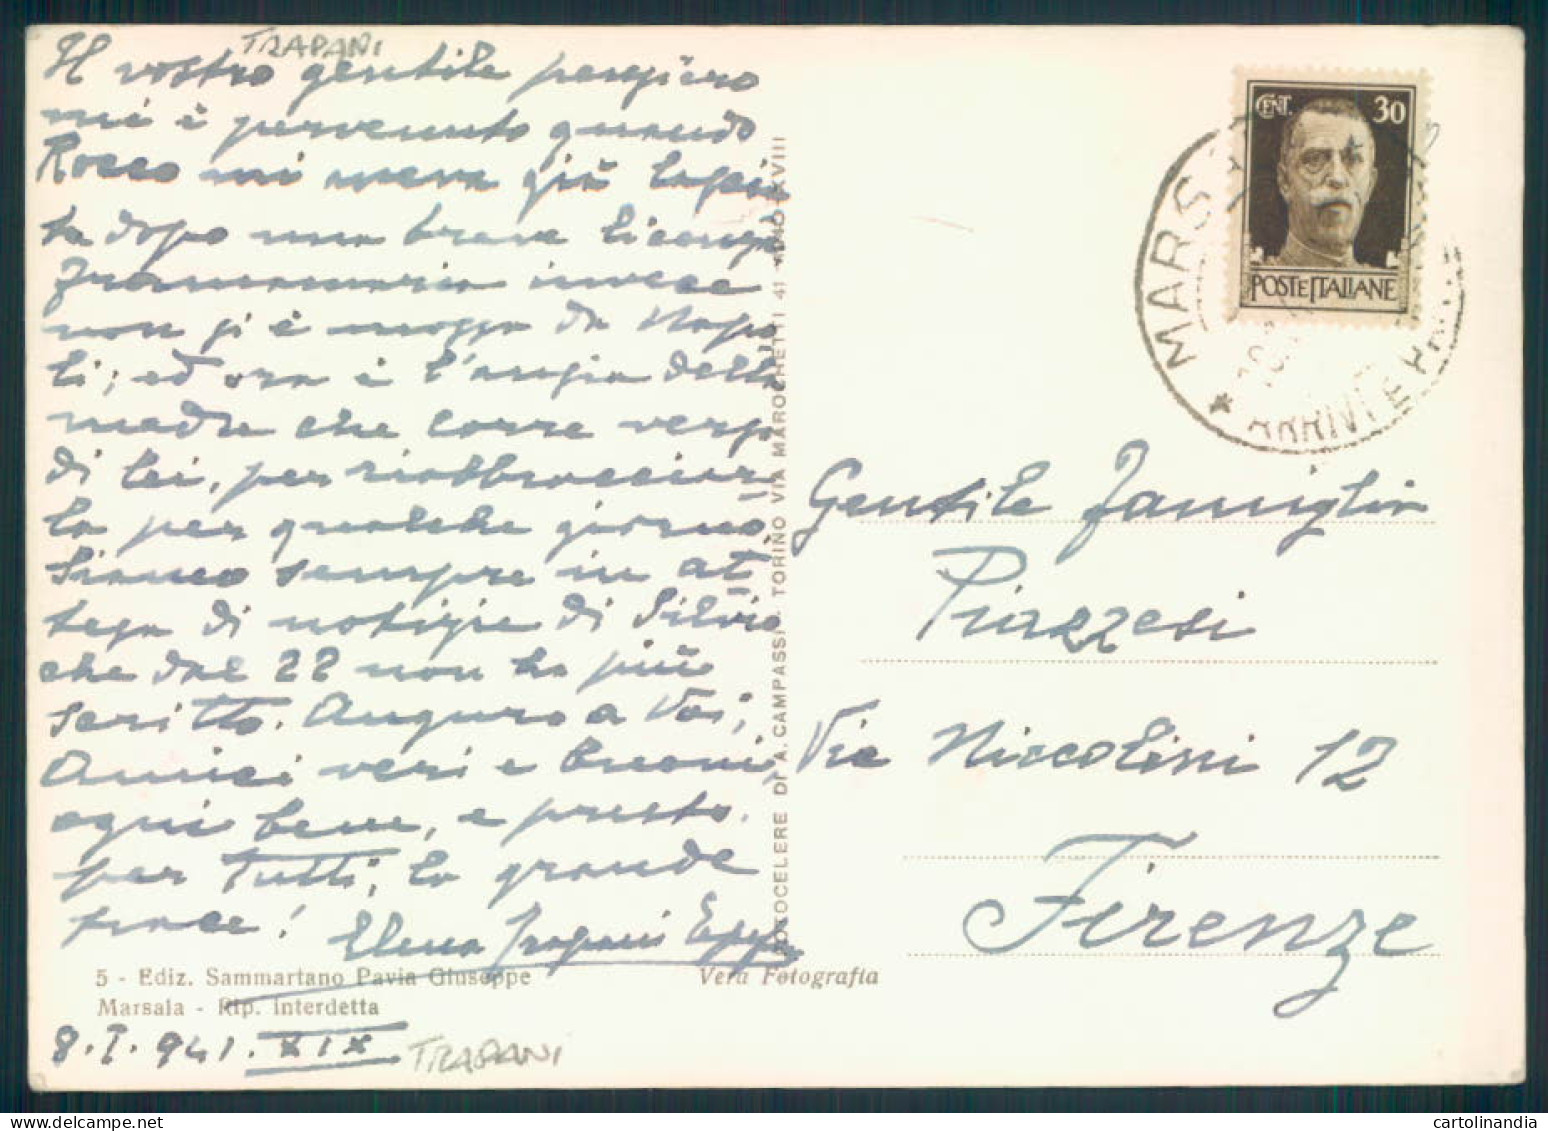 TRAPANI
Il vostro gentile pensiero
mi è pervenuto quando
Rocco mi aveva già lascia
ta dopo una breve licenza
Framaria invece
non si è mossa da Napo
li; ed ora è l'ansia della
madre che corre verso
di lei, per riabbracciar-
la per qualche giorno.
Siamo sempre in at-
tesa di notizie di Silvio
che dal 22 non ha più
scritto. Auguro a Voi,
Amici veri e buoni,
ogni bene, e presto.
per tutti, la grande
pace!
Elena
5 - Ediz. Sammartano Pavia Giuseppe
Marsala - Rip. interdetta
Vera Fotografia
8.I.941.XIX
TRAPANI
FOTOCELERE DI A. CAMPASSI - TORINO VIA MAROCHETTI 41 ANNO XVIII
CENT. 30
POSTE ITALIANE
MARS
ARRIVI E
Gentile Famiglia
Piazzesi
Via Niccolini 12
Firenze
cartolinandia